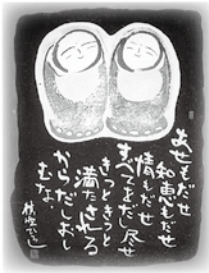 あせもだせ
知恵もだせ
情もだせ
すべてをだし尽せ
きっときっと
満たされる
からだしおし
むな、